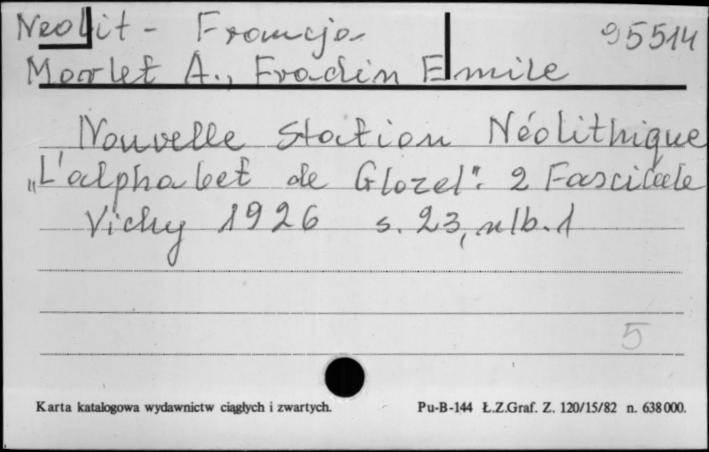 Neolit - Francja 95514
Morlet A., Fradin Emile
Nouvelle Station Néolithique
„L'alphabet de Glozel". 2 Fascicule
Vichy 1926 s. 23, alb. 1
5
Karta katalogowa wydawnictw ciągłych i zwartych. Pu-B-144 Ł.Z.Graf. Z. 120/15/82 n. 638000.